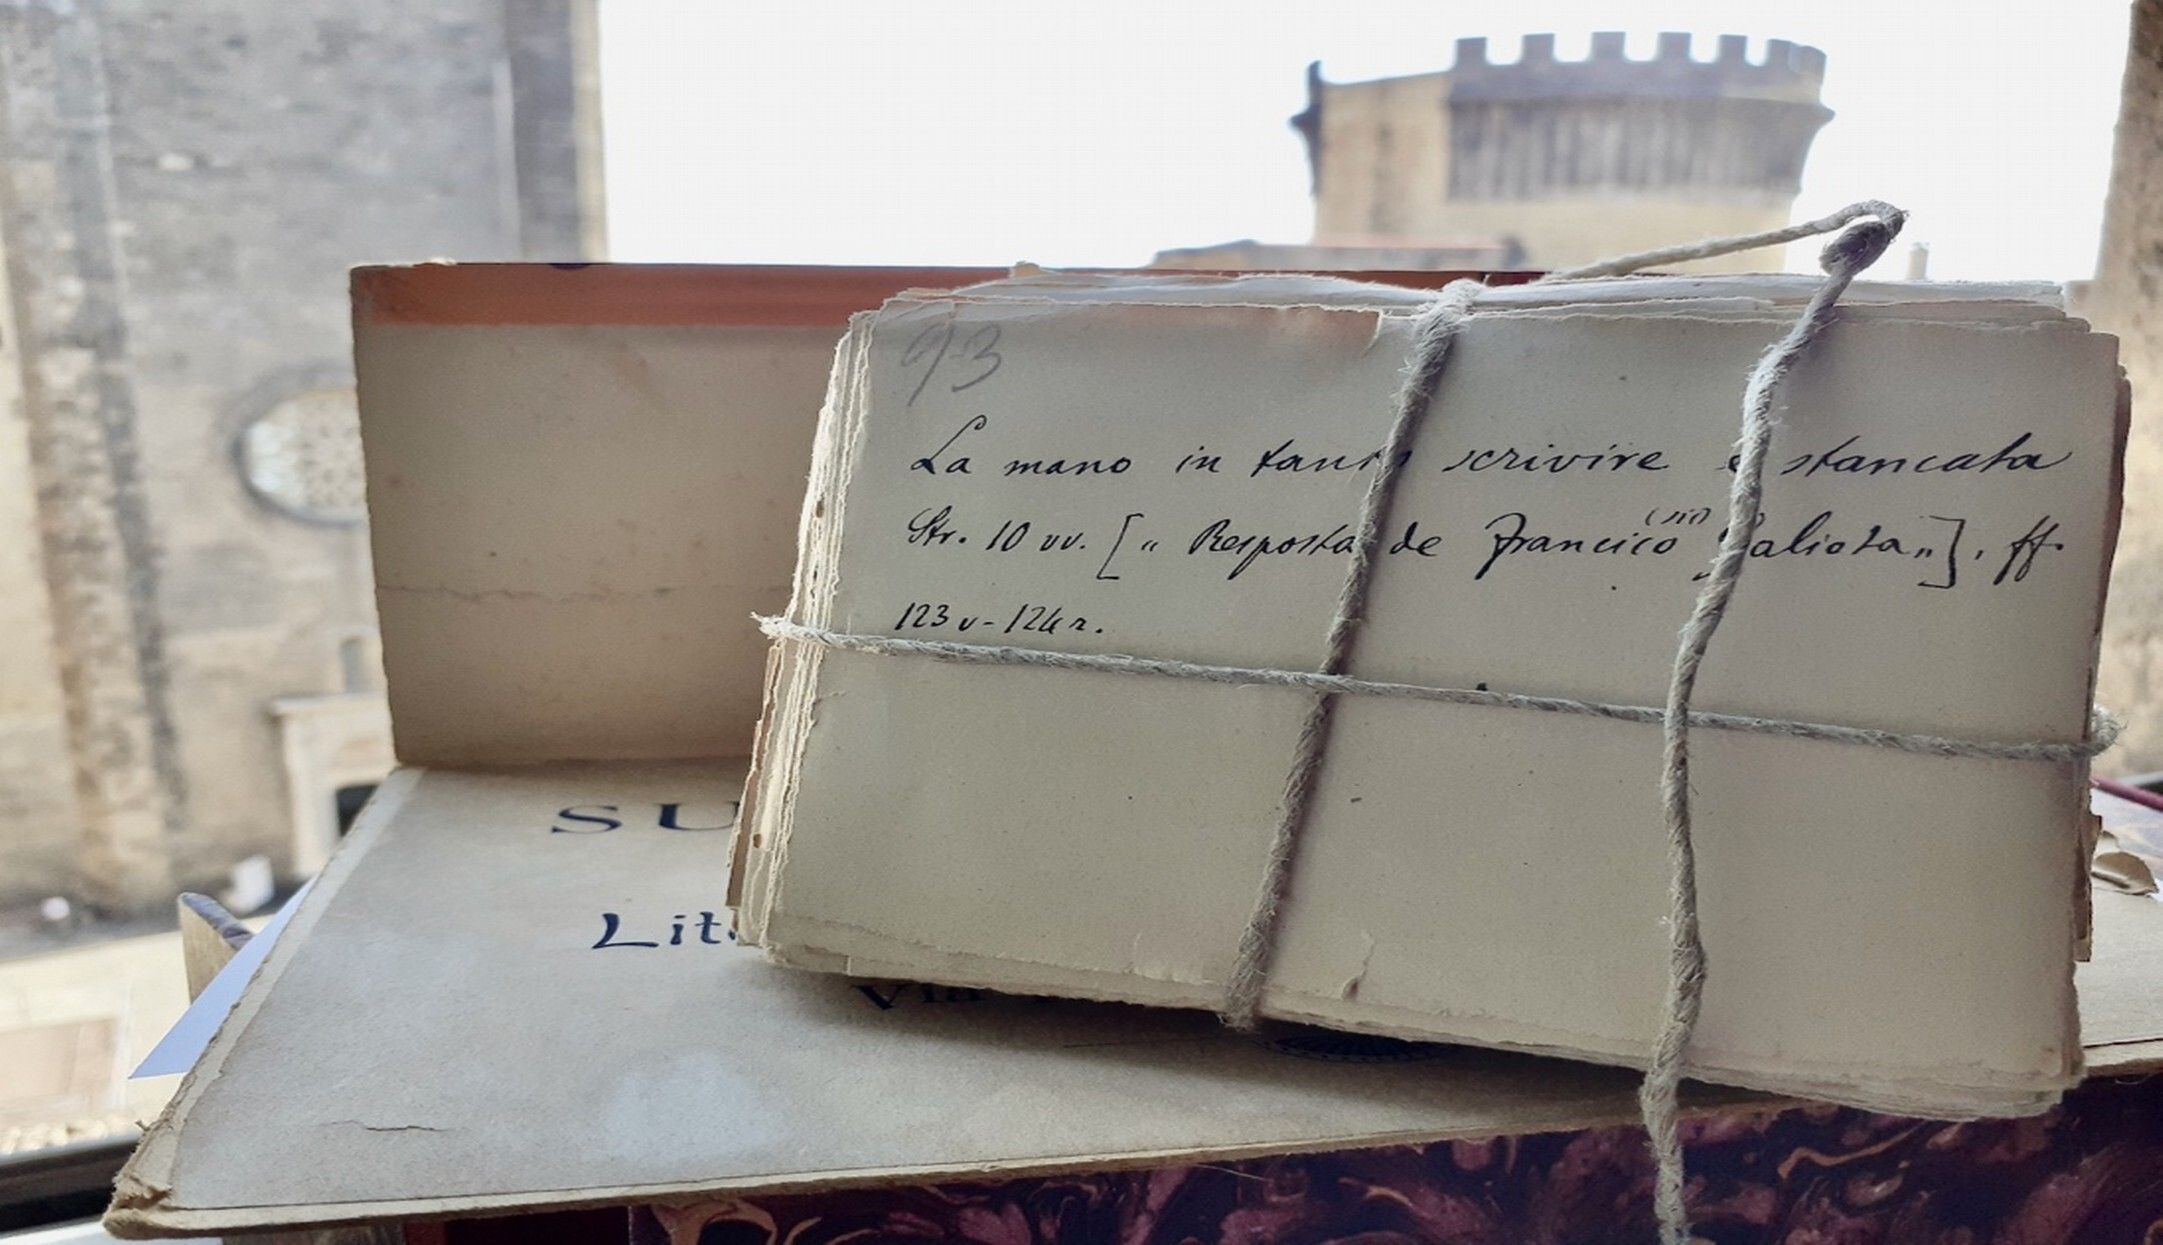 93
La mano in tanto scrivire è stancata
Str. 10 vv. [„ Resposta de Francico (sic) Galiota „], ff.
123v - 124r.
SU
Lit.
Via